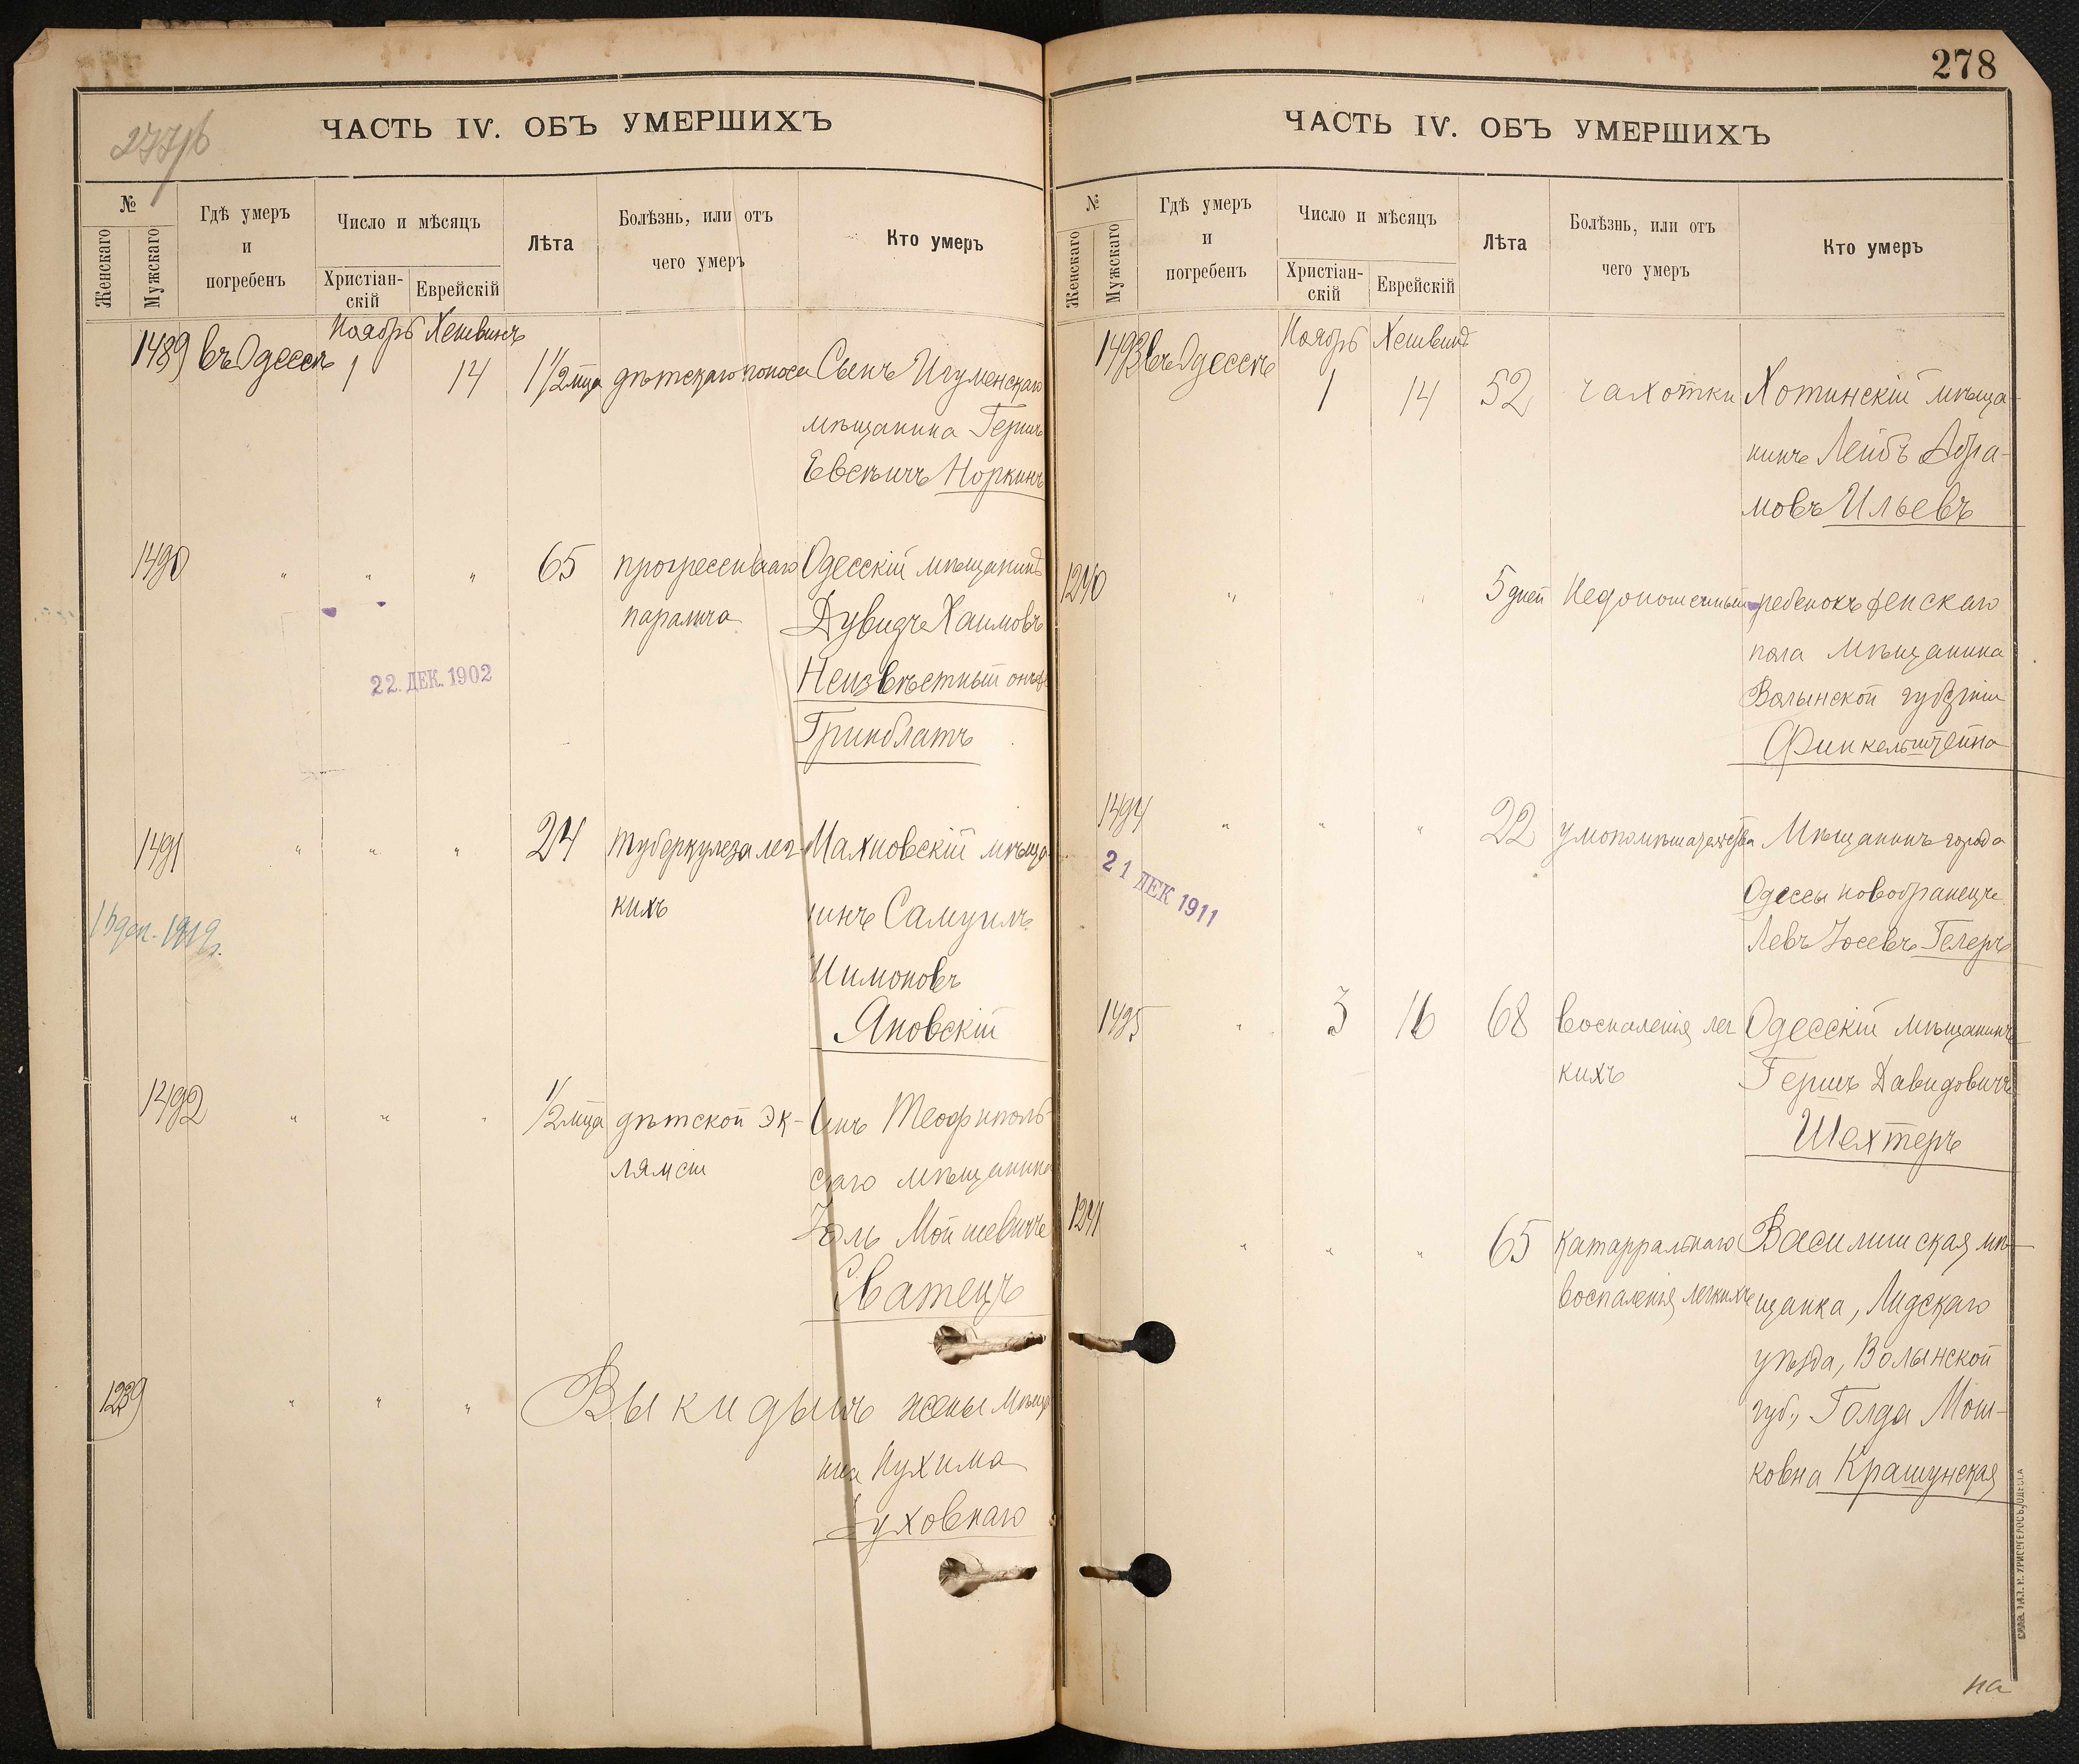 277/б
ЧАСТЬ IV. ОБЪ УМЕРШИХЪ
№
Женскаго
Мужскаго
Гдѣ умеръ
и
погребенъ
Число и мѣсяцъ
Христіан-
скій
Еврейскій
Лѣта
Болѣзнь, или отъ
чего умеръ
Кто умеръ
Ноябрь Хешвинъ
1489 въ Одессѣ 1 14 1 1/2 мца дѣтскаго поноса Сынъ Игуменскаго
мѣщанина Гершъ
Евсѣичъ Норкинъ
1490 " " " 65 прогрессивнаго Одесскій мѣщанинъ
паралича Дувидъ Хаимовъ
Неизвѣстный онъ же
Гринблатъ
22. ДЕК. 1902
1491 " " " 24 туберкулеза лег- Махновскій мѣща-
кихъ нинъ Самуилъ
Шимоновъ
Яновскій
1919г.
1492 " " " 1/2 мца дѣтской эк- Сынъ Теофиполь-
лямсіи скаго мѣщанина
Іоль Мойшевичъ
Сватецъ
1239 " " " Выкидышъ жены мѣща-
нина Нухима
Духовнаго
278
ЧАСТЬ IV. ОБЪ УМЕРШИХЪ
№
Женскаго
Мужскаго
Гдѣ умеръ
и
погребенъ
Число и мѣсяцъ
Христіан-
скій
Еврейскій
Лѣта
Болѣзнь, или отъ
чего умеръ
Кто умеръ
Ноябрь Хешвинъ
1493 въ Одессѣ 1 14 52 чахотки Хотинскій мѣща-
нинъ Лейбъ Абра-
мовъ Ильевъ
1240 " " " 5 дней Недоношенный ребенокъ женскаго
пола мѣщанина
Волынской губерніи
Финкельштейна
1494 " " " 22 умопомѣшательства Мѣщанинъ города
Одессы новобранецъ
Левъ Іосевъ Гелеръ
21 ДЕК 1911
1495 " 3 16 68 воспаленія лег Одесскій мѣщанинъ
кихъ Гершъ Давидовичъ
Шехтеръ
1241 " " " 65 катарральнаго Василишская мѣ-
воспаленія легкихъ щанка, Лидскаго
уѣзда, Волынской
губ., Голда Мош-
ковна Крашунская
на